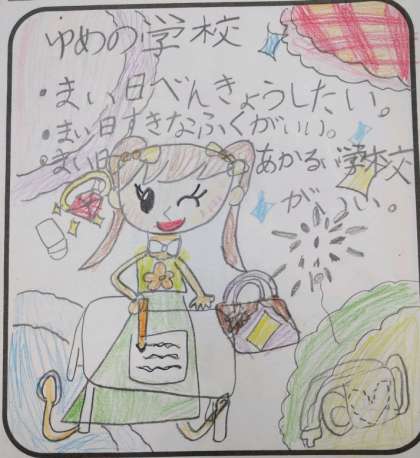 ゆめの学校
・まい日べんきょうしたい。
・まい日すきなふくがいい。
・まい日 あかるい学校
がいい。